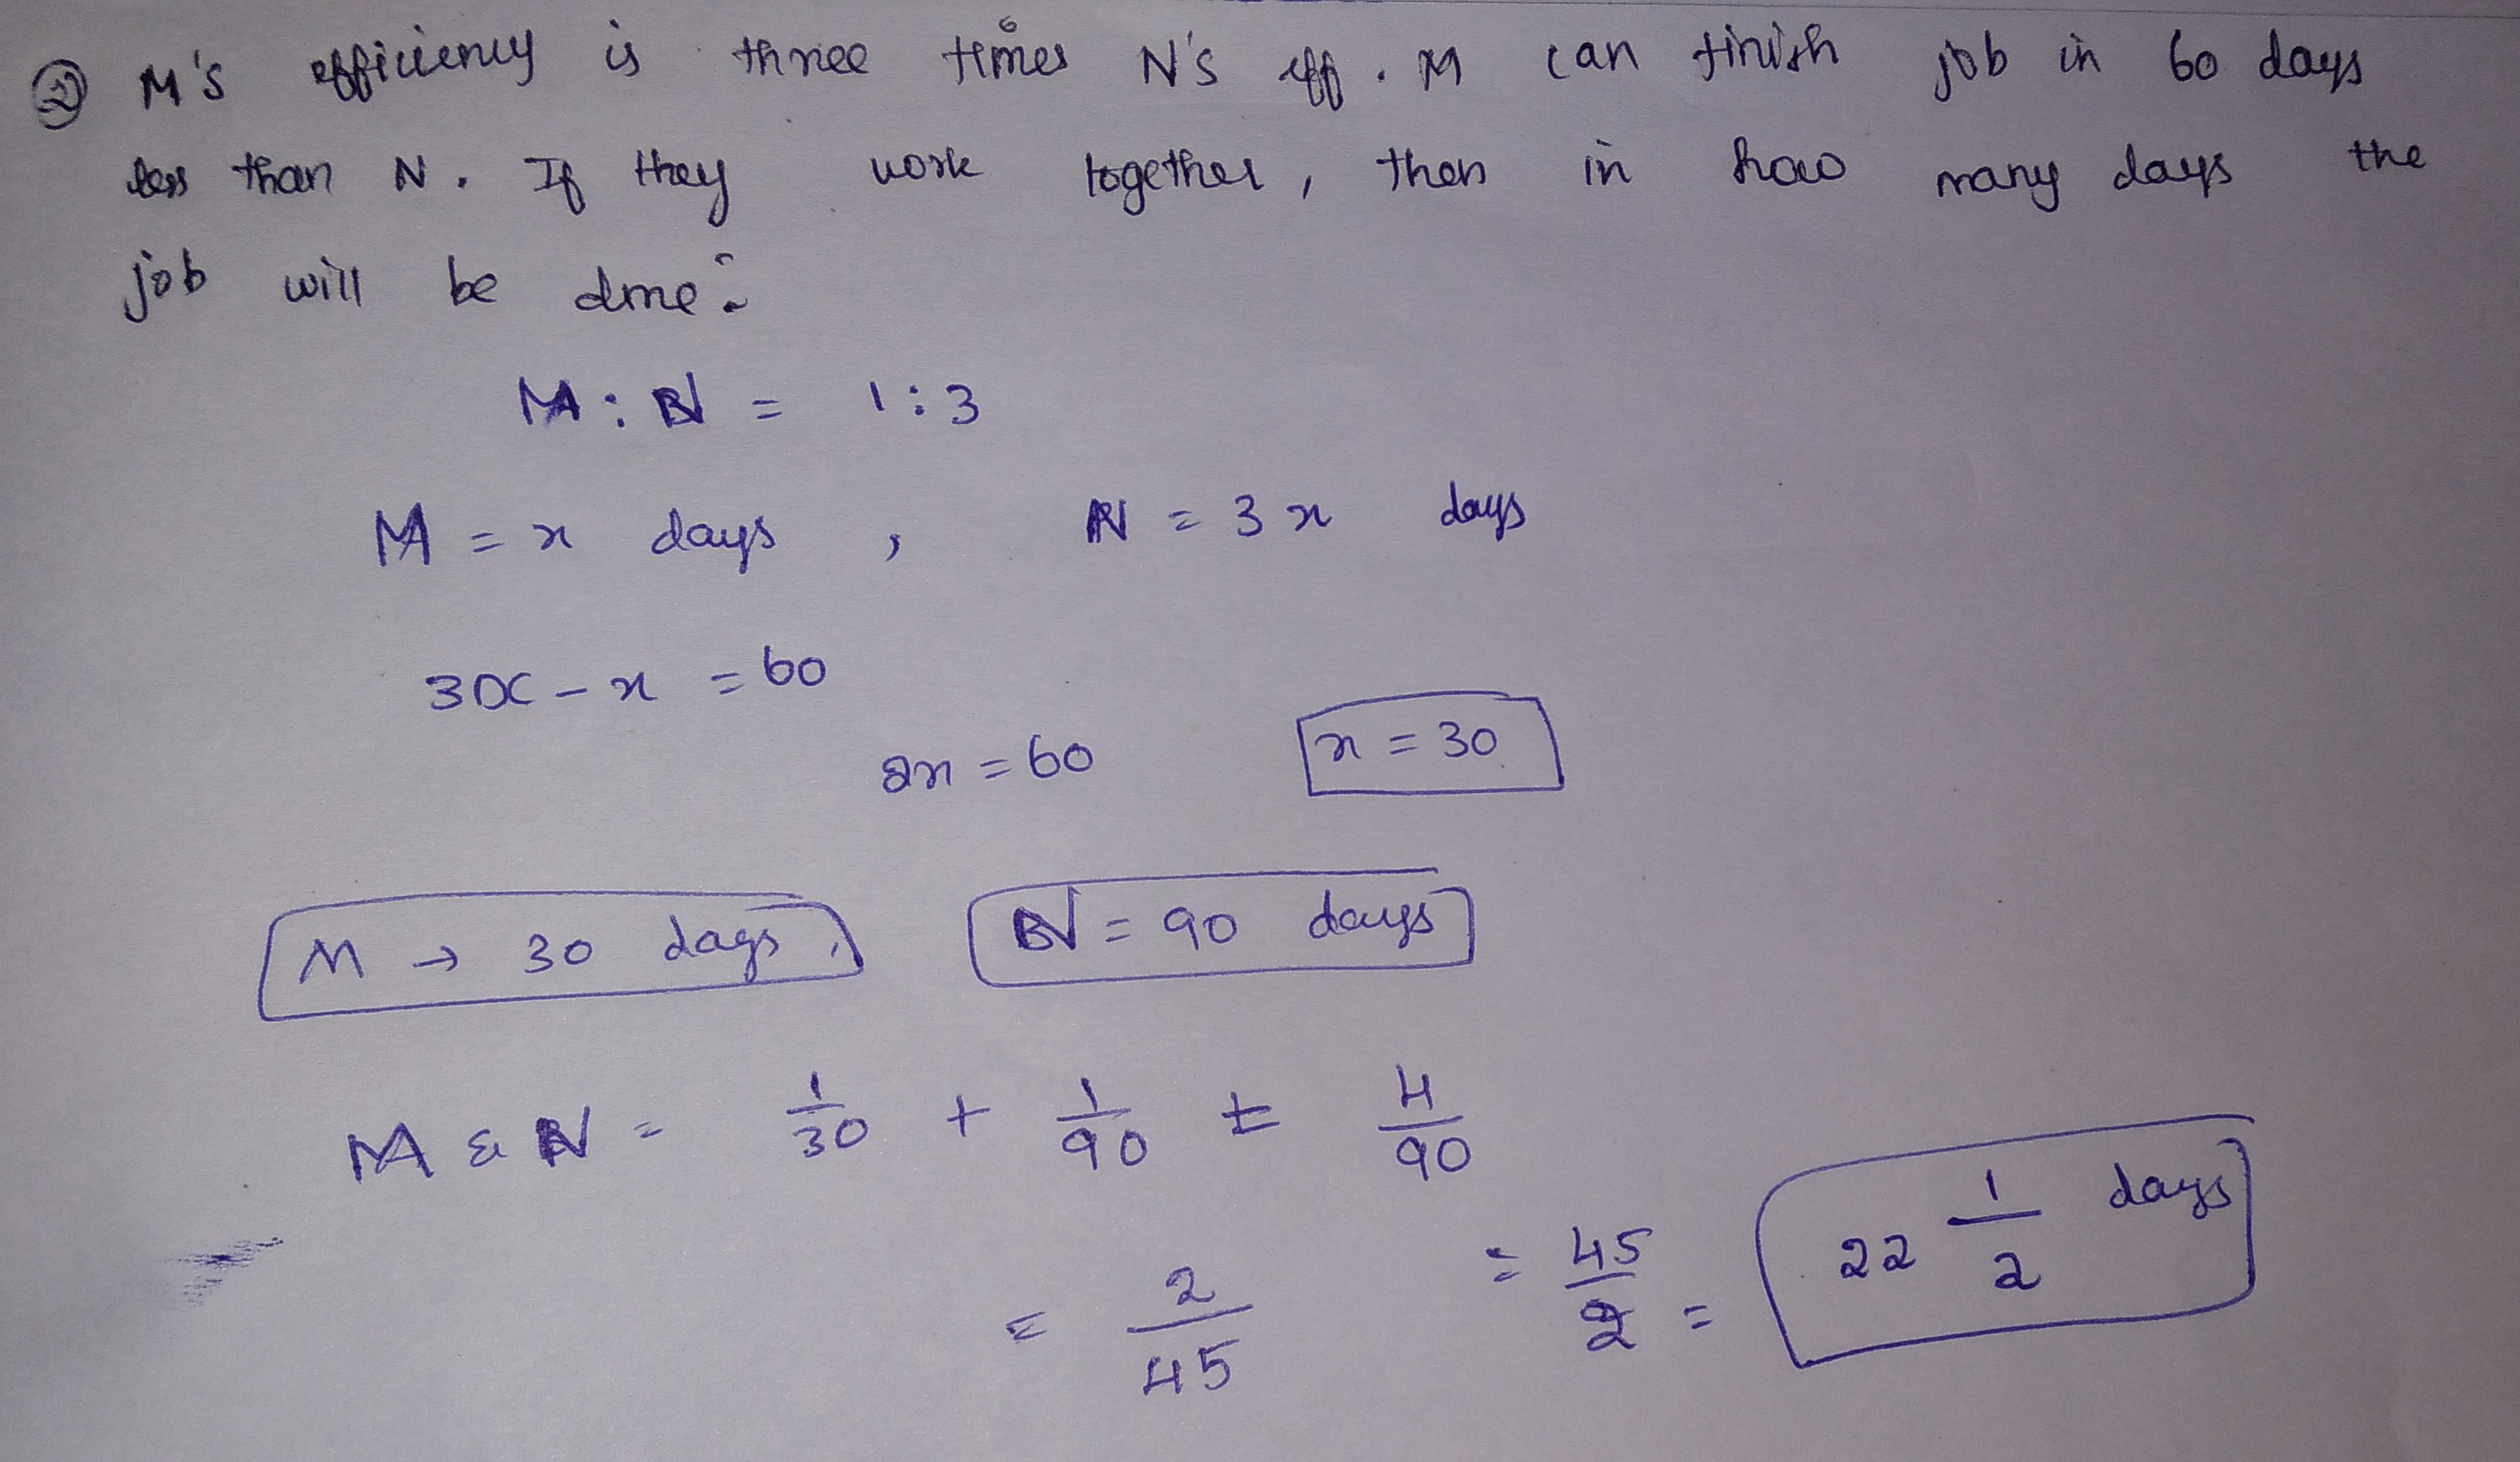 ② M's efficiency is three times N's eff. M can finish job in 60 days
less than N. If they work together, then in how many days the
job will be done?
M : N = 1:3
M = x days, N = 3x days
3x - x = 60
2x = 60 x = 30
M → 30 days, N = 90 days
M & N = 1/30 + 1/90 = 4/90
= 2/45 = 45/2 = 22 1/2 days